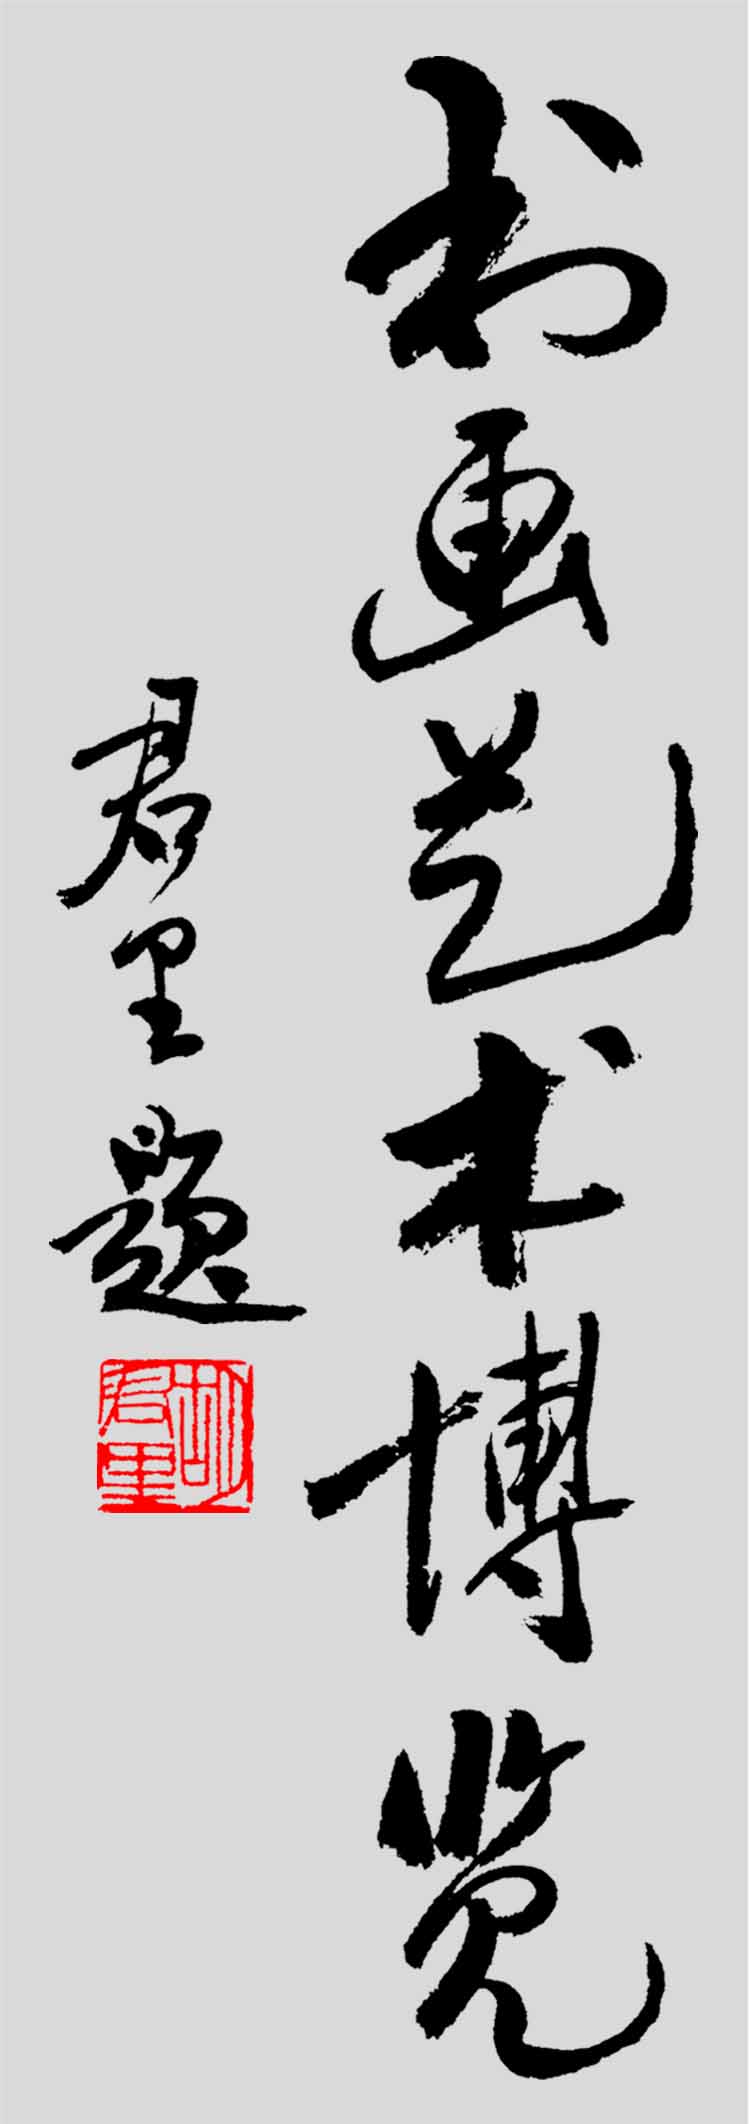 书画艺术博览
君里题
胡君里